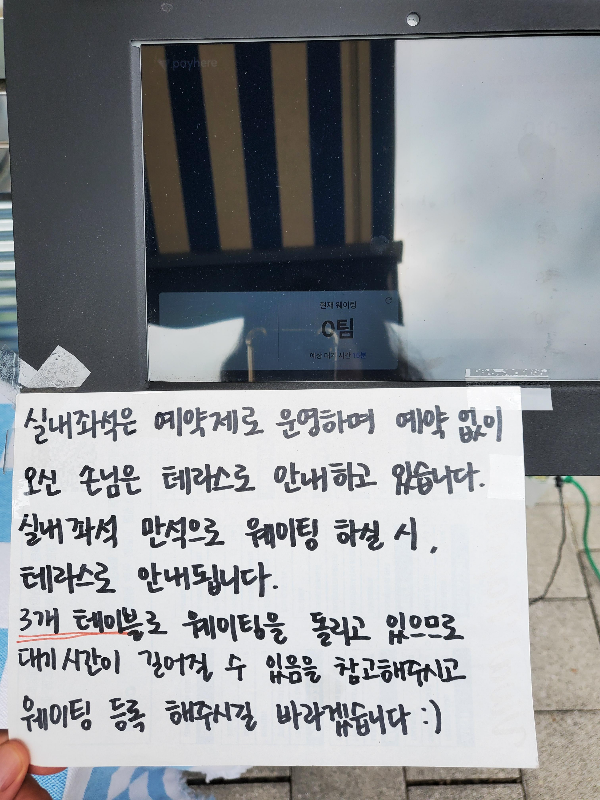 payhere
현재 웨이팅
0팀
예상 대기 시간 10분
실내좌석은 예약제로 운영하며 예약 없이
오신 손님은 테라스로 안내하고 있습니다.
실내좌석 만석으로 웨이팅 하실 시,
테라스로 안내됩니다.
3개 테이블로 웨이팅을 돌리고 있으므로
대기시간이 길어질 수 있음을 참고해주시고
웨이팅 등록 해주시길 바라겠습니다 :)